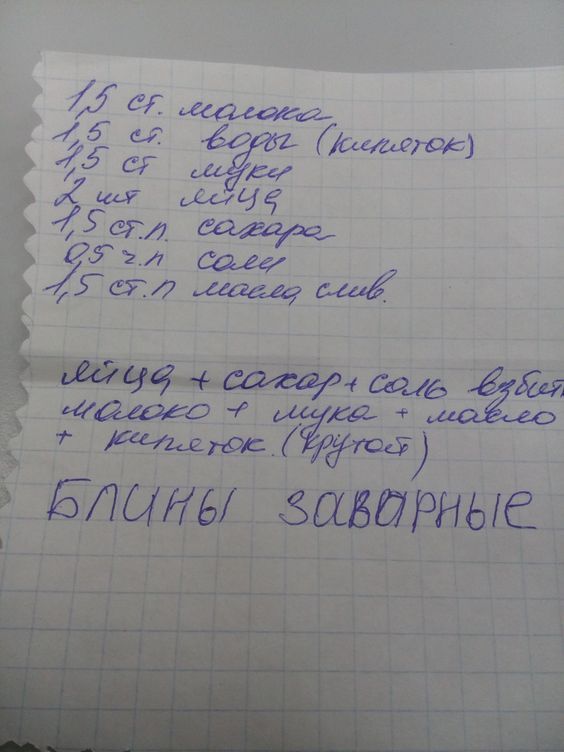 1,5 ст. молока
1,5 ст. воды (кипяток)
1,5 ст муки
2 шт яйца
1,5 ст.л. сахара
0,5 ч.л соли
1,5 ст.л масла слив.
яйца + сахар + соль взбить
молоко + мука + масло
+ кипяток. (крутой)
Блины заварные